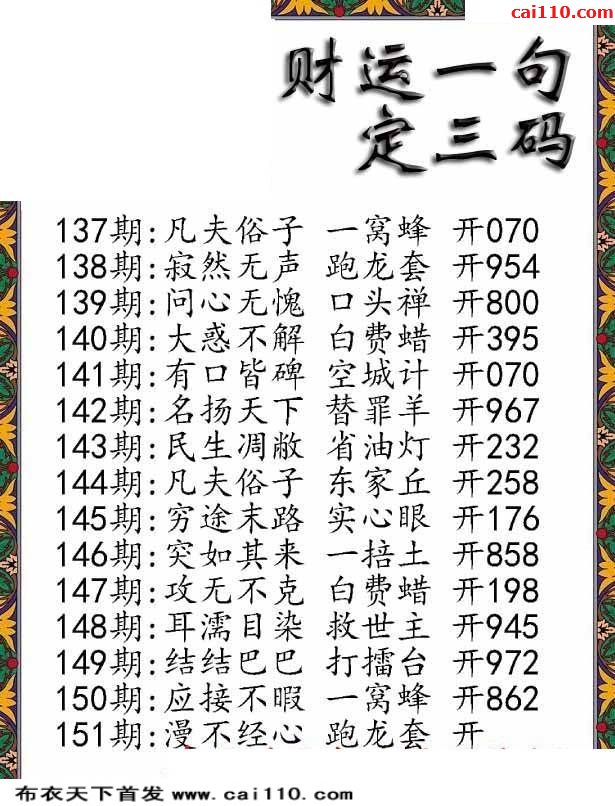 cai110.com
财运一句
定三码
137期:凡夫俗子 一窝蜂 开070
138期:寂然无声 跑龙套 开954
139期:问心无愧 口头禅 开800
140期:大惑不解 白费蜡 开395
141期:有口皆碑 空城计 开070
142期:名扬天下 替罪羊 开967
143期:民生凋敝 省油灯 开232
144期:凡夫俗子 东家丘 开258
145期:穷途末路 实心眼 开176
146期:突如其来 一掊土 开858
147期:攻无不克 白费蜡 开198
148期:耳濡目染 救世主 开945
149期:结结巴巴 打擂台 开972
150期:应接不暇 一窝蜂 开862
151期:漫不经心 跑龙套 开
布衣天下首发 www.cai110.com